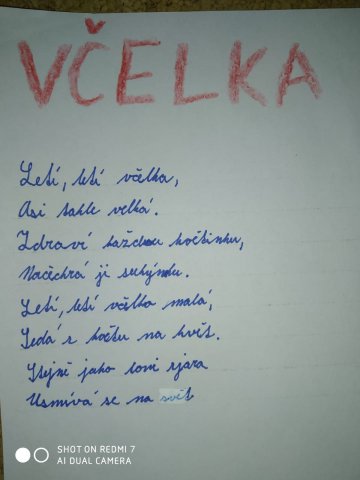 VČELKA
Letí, letí včelka,
Asi takle velká.
Zdraví každou květinku,
Načechrá jí sukýnku.
Letí, letí včelka malá,
Sedá z květu na květ.
Stejně jako loni zjara
Usmívá se na svět
SHOT ON REDMI 7
AI DUAL CAMERA